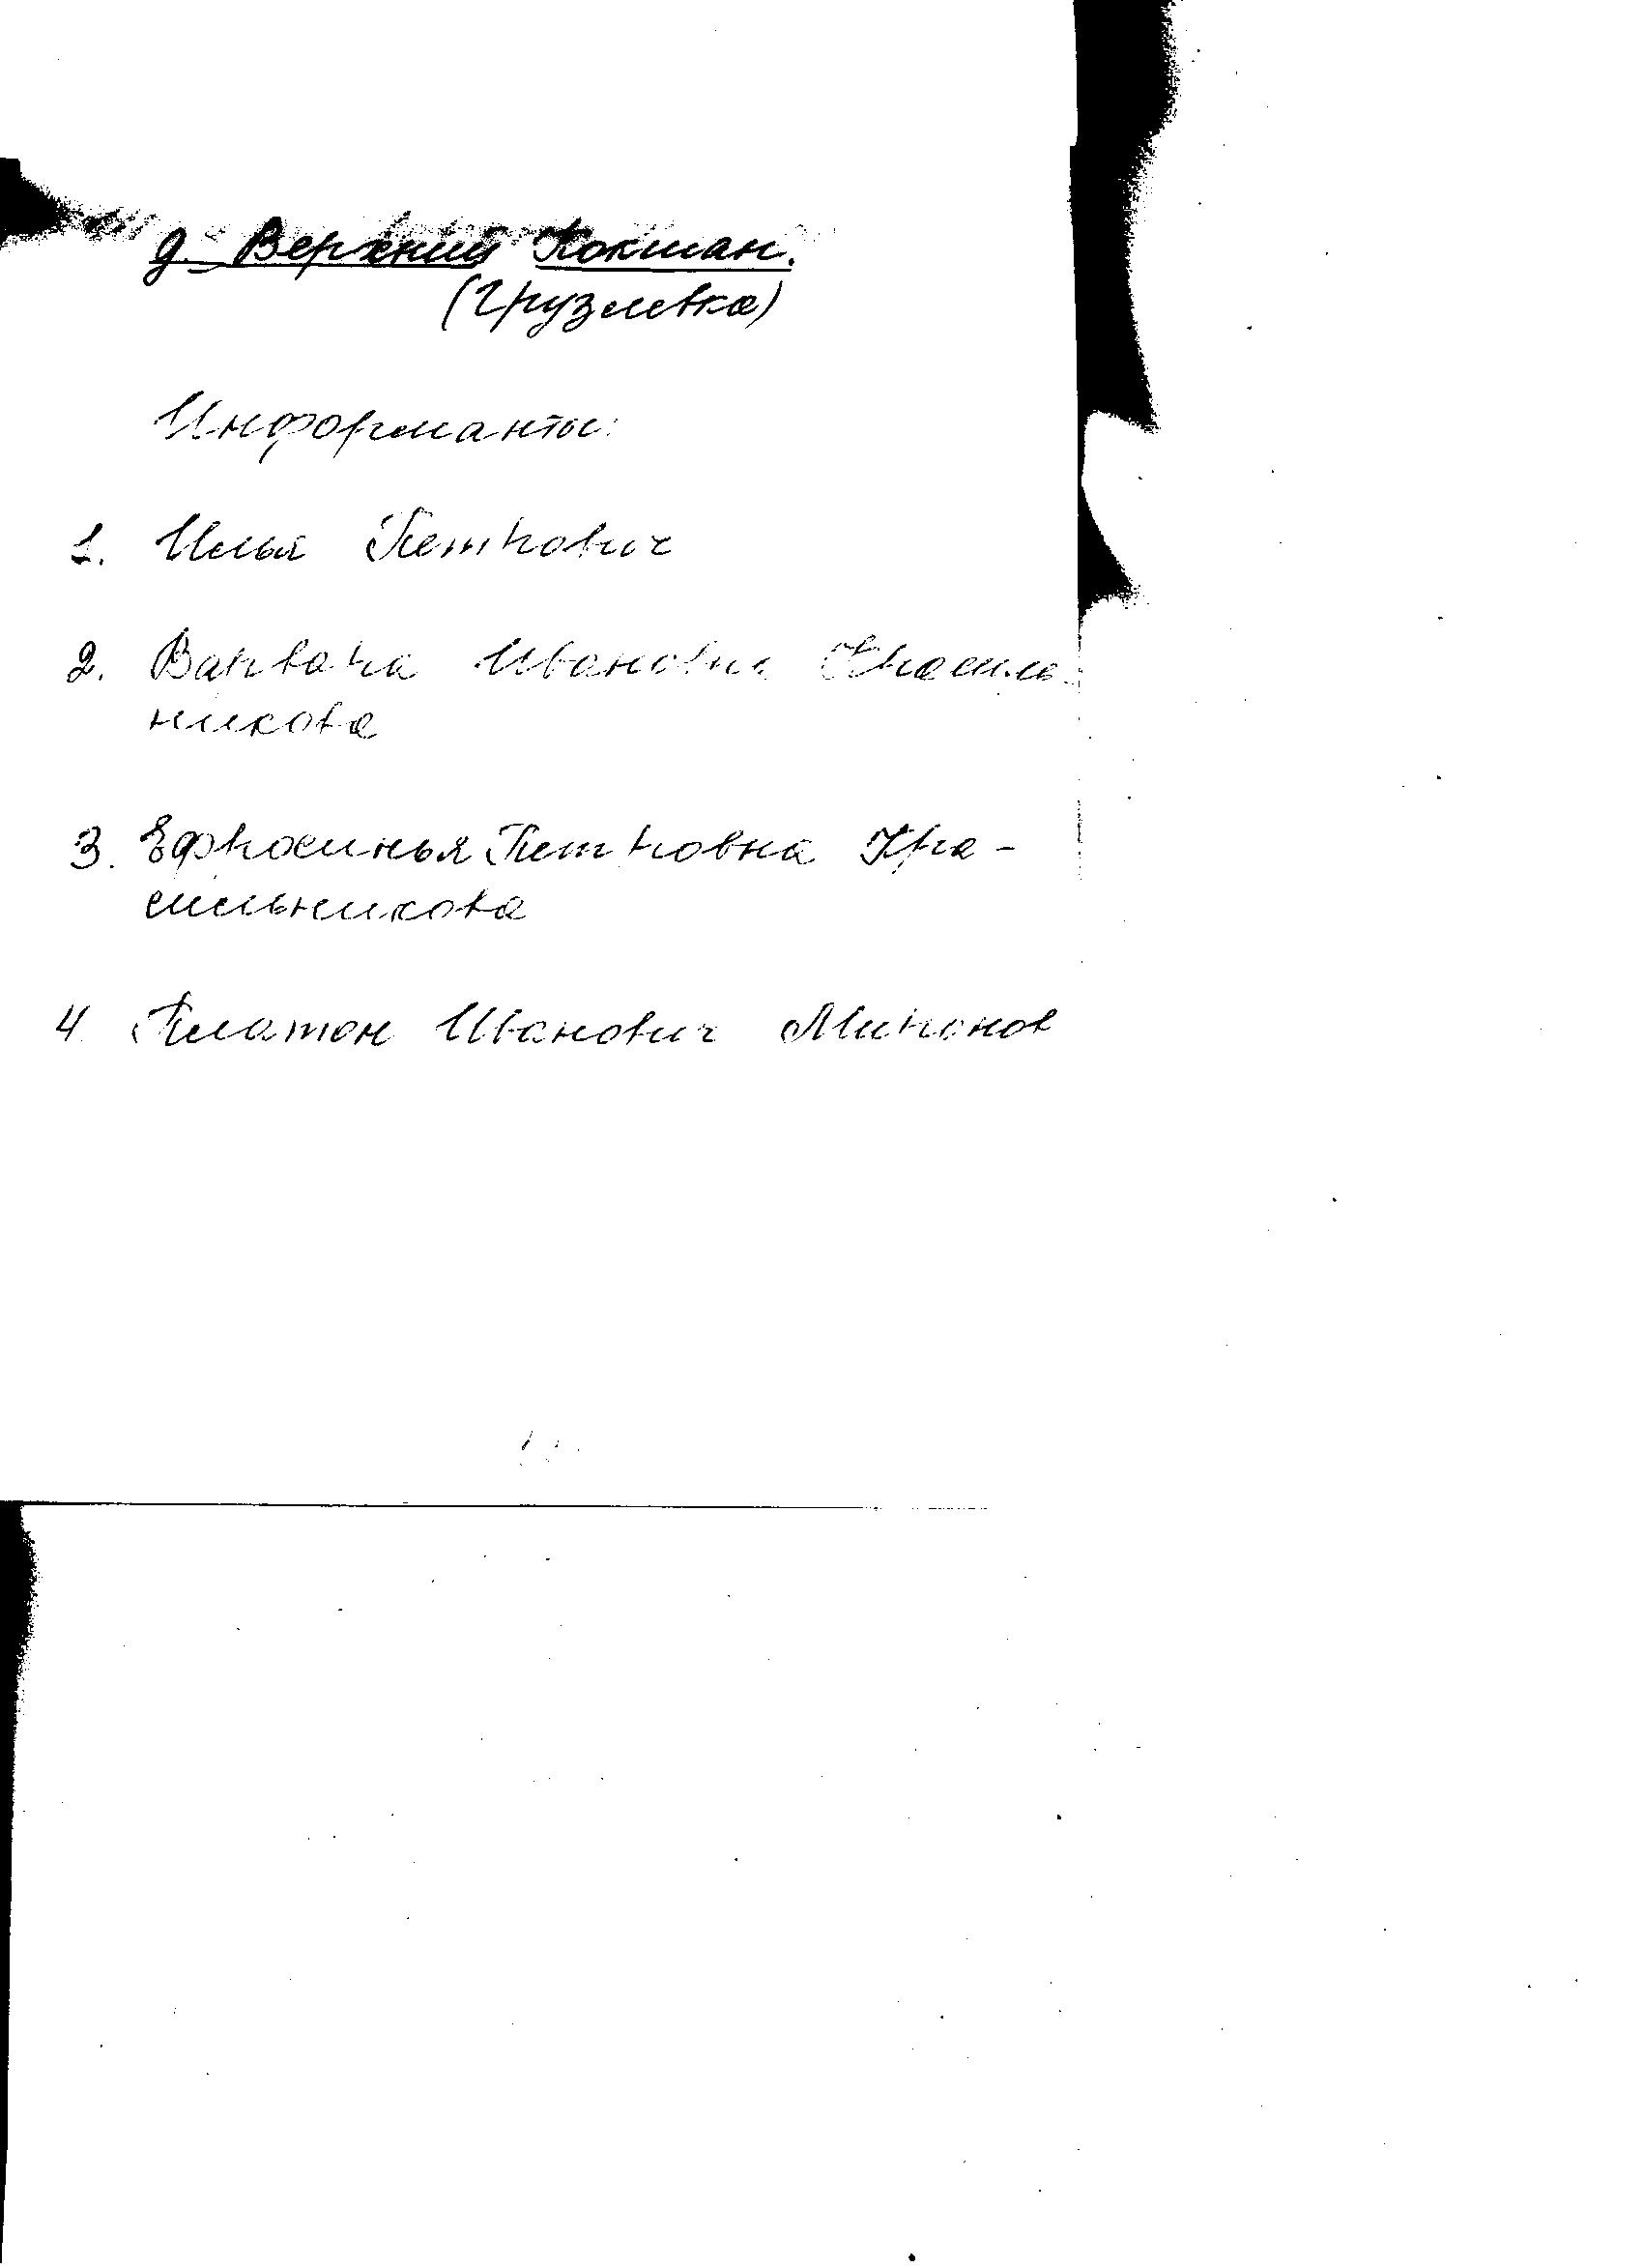 д. Верхний Кокшан.
(Грузлевка)
Информанты:
1. Илья Петрович
2. Варвара Ивановна Красиль-
никова
3. Ефросинья Петровна Кра-
сильникова
4 Платон Иванович Миронов